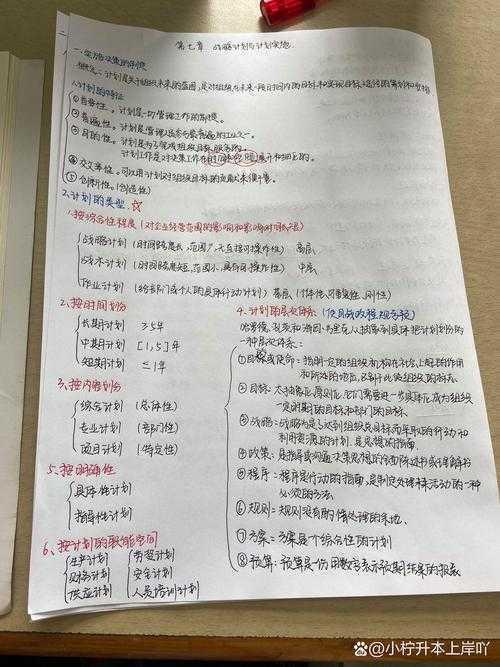 第七章 战略计划与计划实施
一、实施决策的制度
概念：计划是关于组织未来的蓝图，是对组织在未来一段时间内的目标和实现目标途径的策划和安排
1.计划的特征
①首要性。计划是一切管理工作的前提。
②普遍性。计划是管理人员参与最普遍的工作之一。
③目的性。计划是为了完成组织目标服务的。
计划工作是对决策工作在时间和空间展开和细化的。
④效率性。可以用计划对组织目标的贡献来衡量。
⑤创新性。(创造性)
2.计划的类型 ☆
1.按综合性程度(对企业经营范围的影响和影响时间长短)
战略计划 (时间跨度长,范围广,无直接可操作性) 高层
战术计划 (时间跨度短,范围小,具有可操作性) 中层
作业计划 (给部门或个人的具体行动计划) 基层 (个体性,可重复性,刚性)
2、按时间划分
长期计划 ≥5年
中期计划 [1,5]年
短期计划 ≤1年
3、按内容划分
综合计划 (总体性)
专业计划 (部门性)
项目计划 (特定性)
5、按明确性
具体性计划
指导性计划
6、按计划的职能空间
生产计划
财务计划
供应计划
劳资计划
安全计划
人员培训计划
4.计划的层次体系：(使目战政程规方预)
哈罗德,孔茨和海因·韦里在从抽象到具体把计划划分为
一种层次体系：
①目标或使命：指明一定的组织机构在社会上起的作用
和所处的地位,
②目标：太抽象,太原则化,它们需要进一步具体化成为组织
一定时期的目标和各部门的目标.
③战略：战略为是了达到组织总目标而采取的行动和
利用资源的计划,是总规的指南.
④政策：是指导或沟通决策思想的全面陈述书或理解书
⑤程序：程序是行动的指南,是制定处理未来活动的一种
必须的方法.
⑥规则：规则没有酌情处理的余地.
⑦方案：方案是个综合性的计划
⑧预算：预算是一份用数字表示预期结果的报表
@小柠升本上岸吖